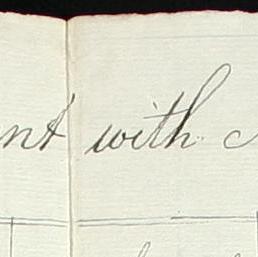 nt with